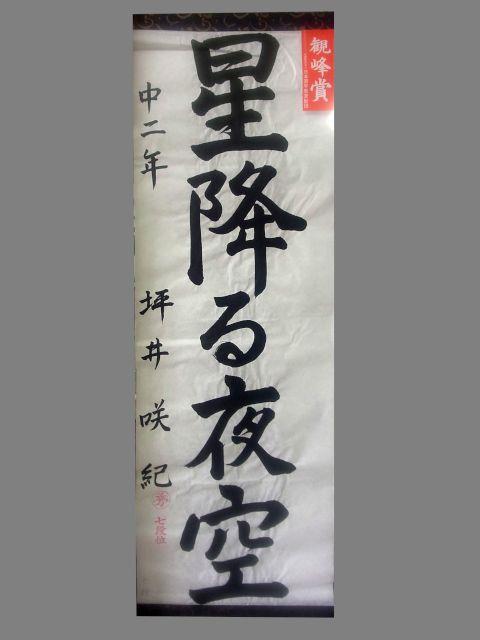 観峰賞
星降る夜空
中二年 坪井咲紀
秀
七段位